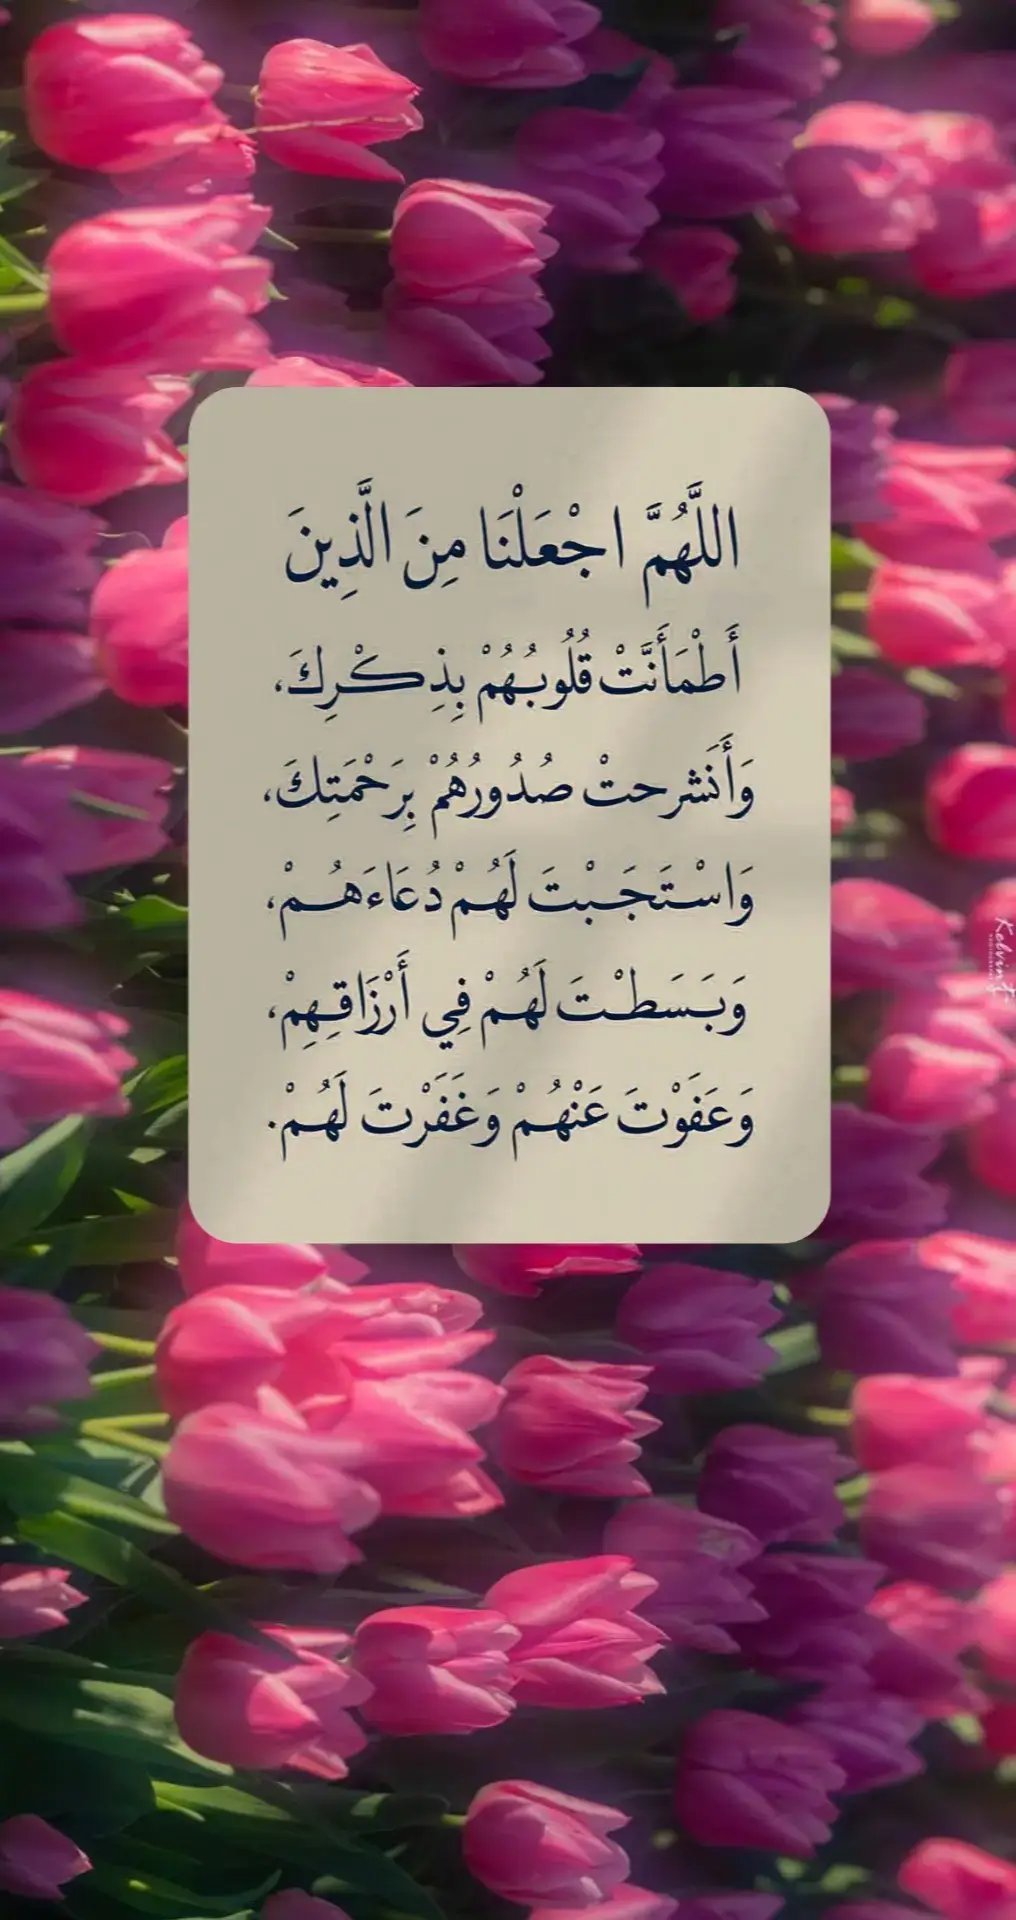 اللَّهُمَّ اجْعَلْنَا مِنَ الَّذِينَ
أَطْمَأَنَّتْ قُلُوبُهُمْ بِذِكْرِكَ،
وَأَنَشرحتْ صُدُورُهُمْ بِرَحْمَتِكَ،
وَاسْتَجَبْتَ لَهُمْ دُعَاءَهُمْ،
وَبَسَطْتَ لَهُمْ فِي أَرْزَاقِهِمْ،
وَعَفَوْتَ عَنْهُمْ وَغَفَرْتَ لَهُمْ.